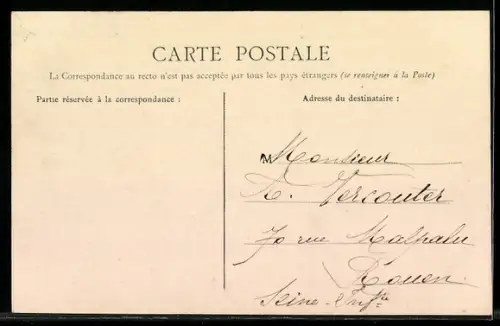 CARTE POSTALE
La Correspondance au recto n'est pas acceptée par tous les pays étrangers (se renseigner à la Poste)
Partie réservée à la correspondance :
Adresse du destinataire :
M Monsieur
A. Vercouter
70 rue Malpalu
Rouen.
Seine-Infre